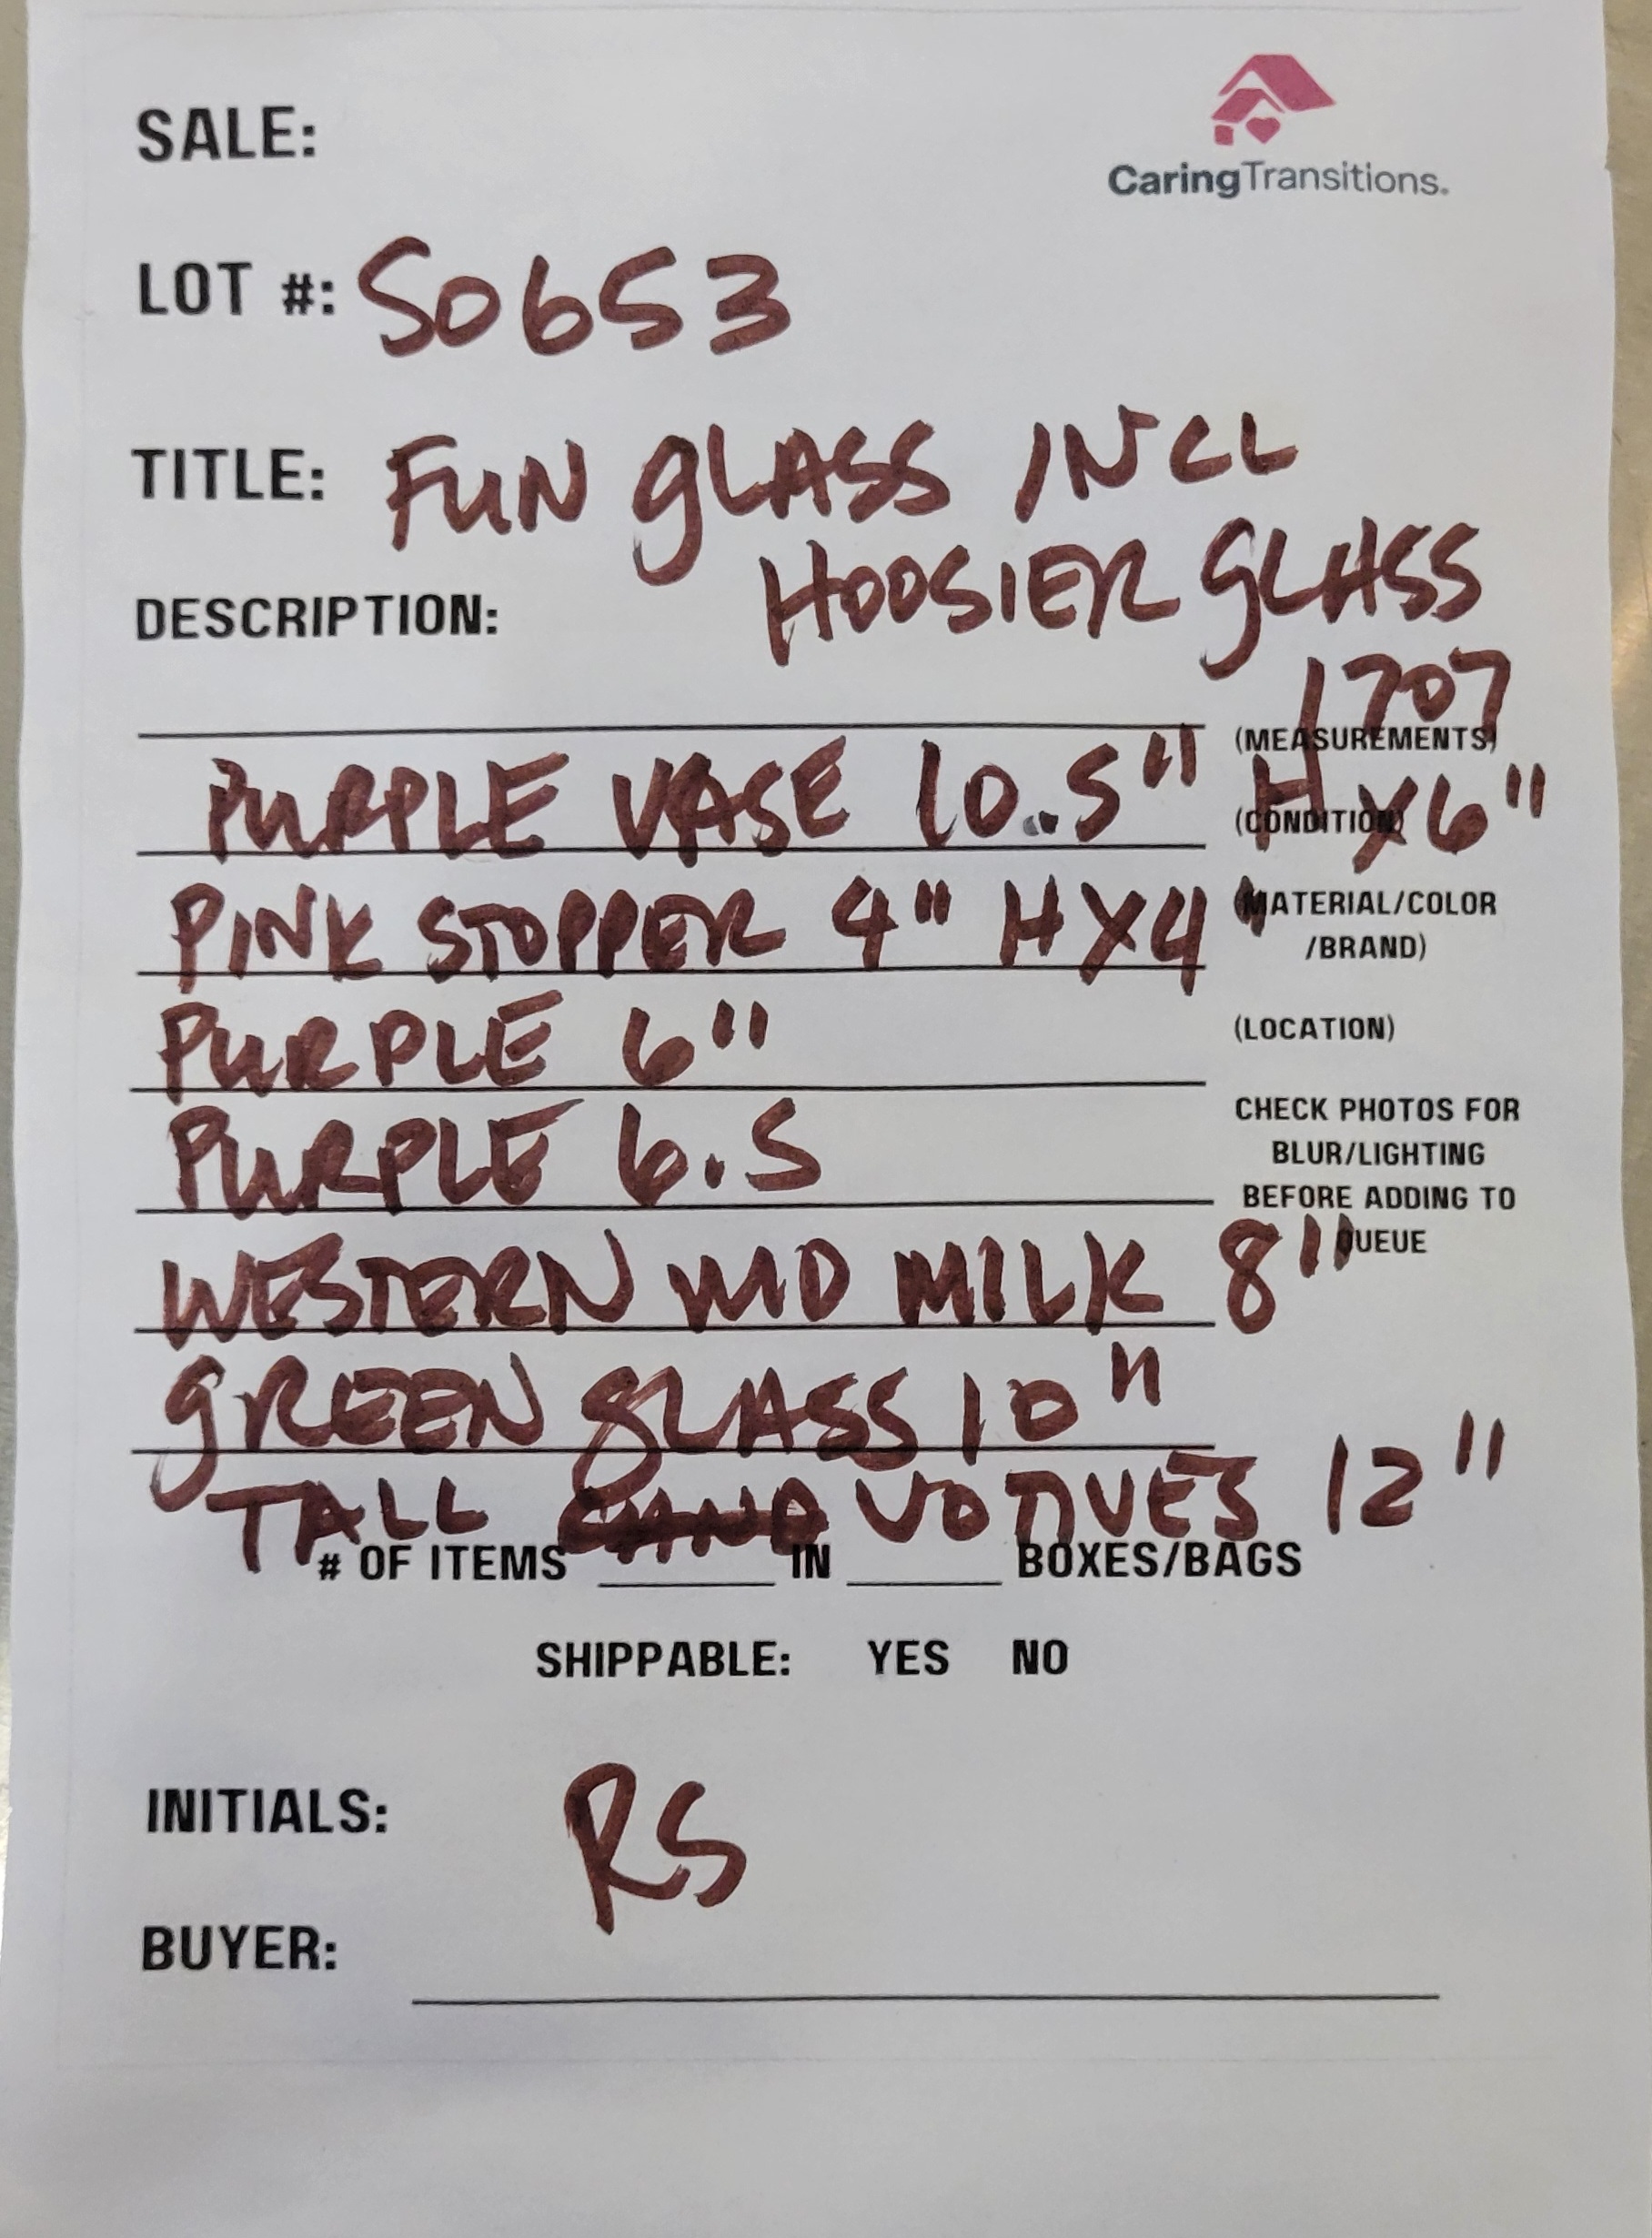 SALE:
CaringTransitions.
LOT #: S0653
TITLE: FUN GLASS INCL
HOOSIER GLASS
DESCRIPTION:
1707
(MEASUREMENTS)
PURPLE VASE 10.5" H X 6"
(CONDITION)
PINK STOPPER 4" H X 4"
(MATERIAL/COLOR
/BRAND)
PURPLE 6"
(LOCATION)
PURPLE 6.5
CHECK PHOTOS FOR
BLUR/LIGHTING
BEFORE ADDING TO
QUEUE
WESTERN MD MILK 8"
GREEN GLASS 10"
TALL VOTIVES 12"
# OF ITEMS ______ IN ______ BOXES/BAGS
SHIPPABLE: YES NO
INITIALS: RS
BUYER: